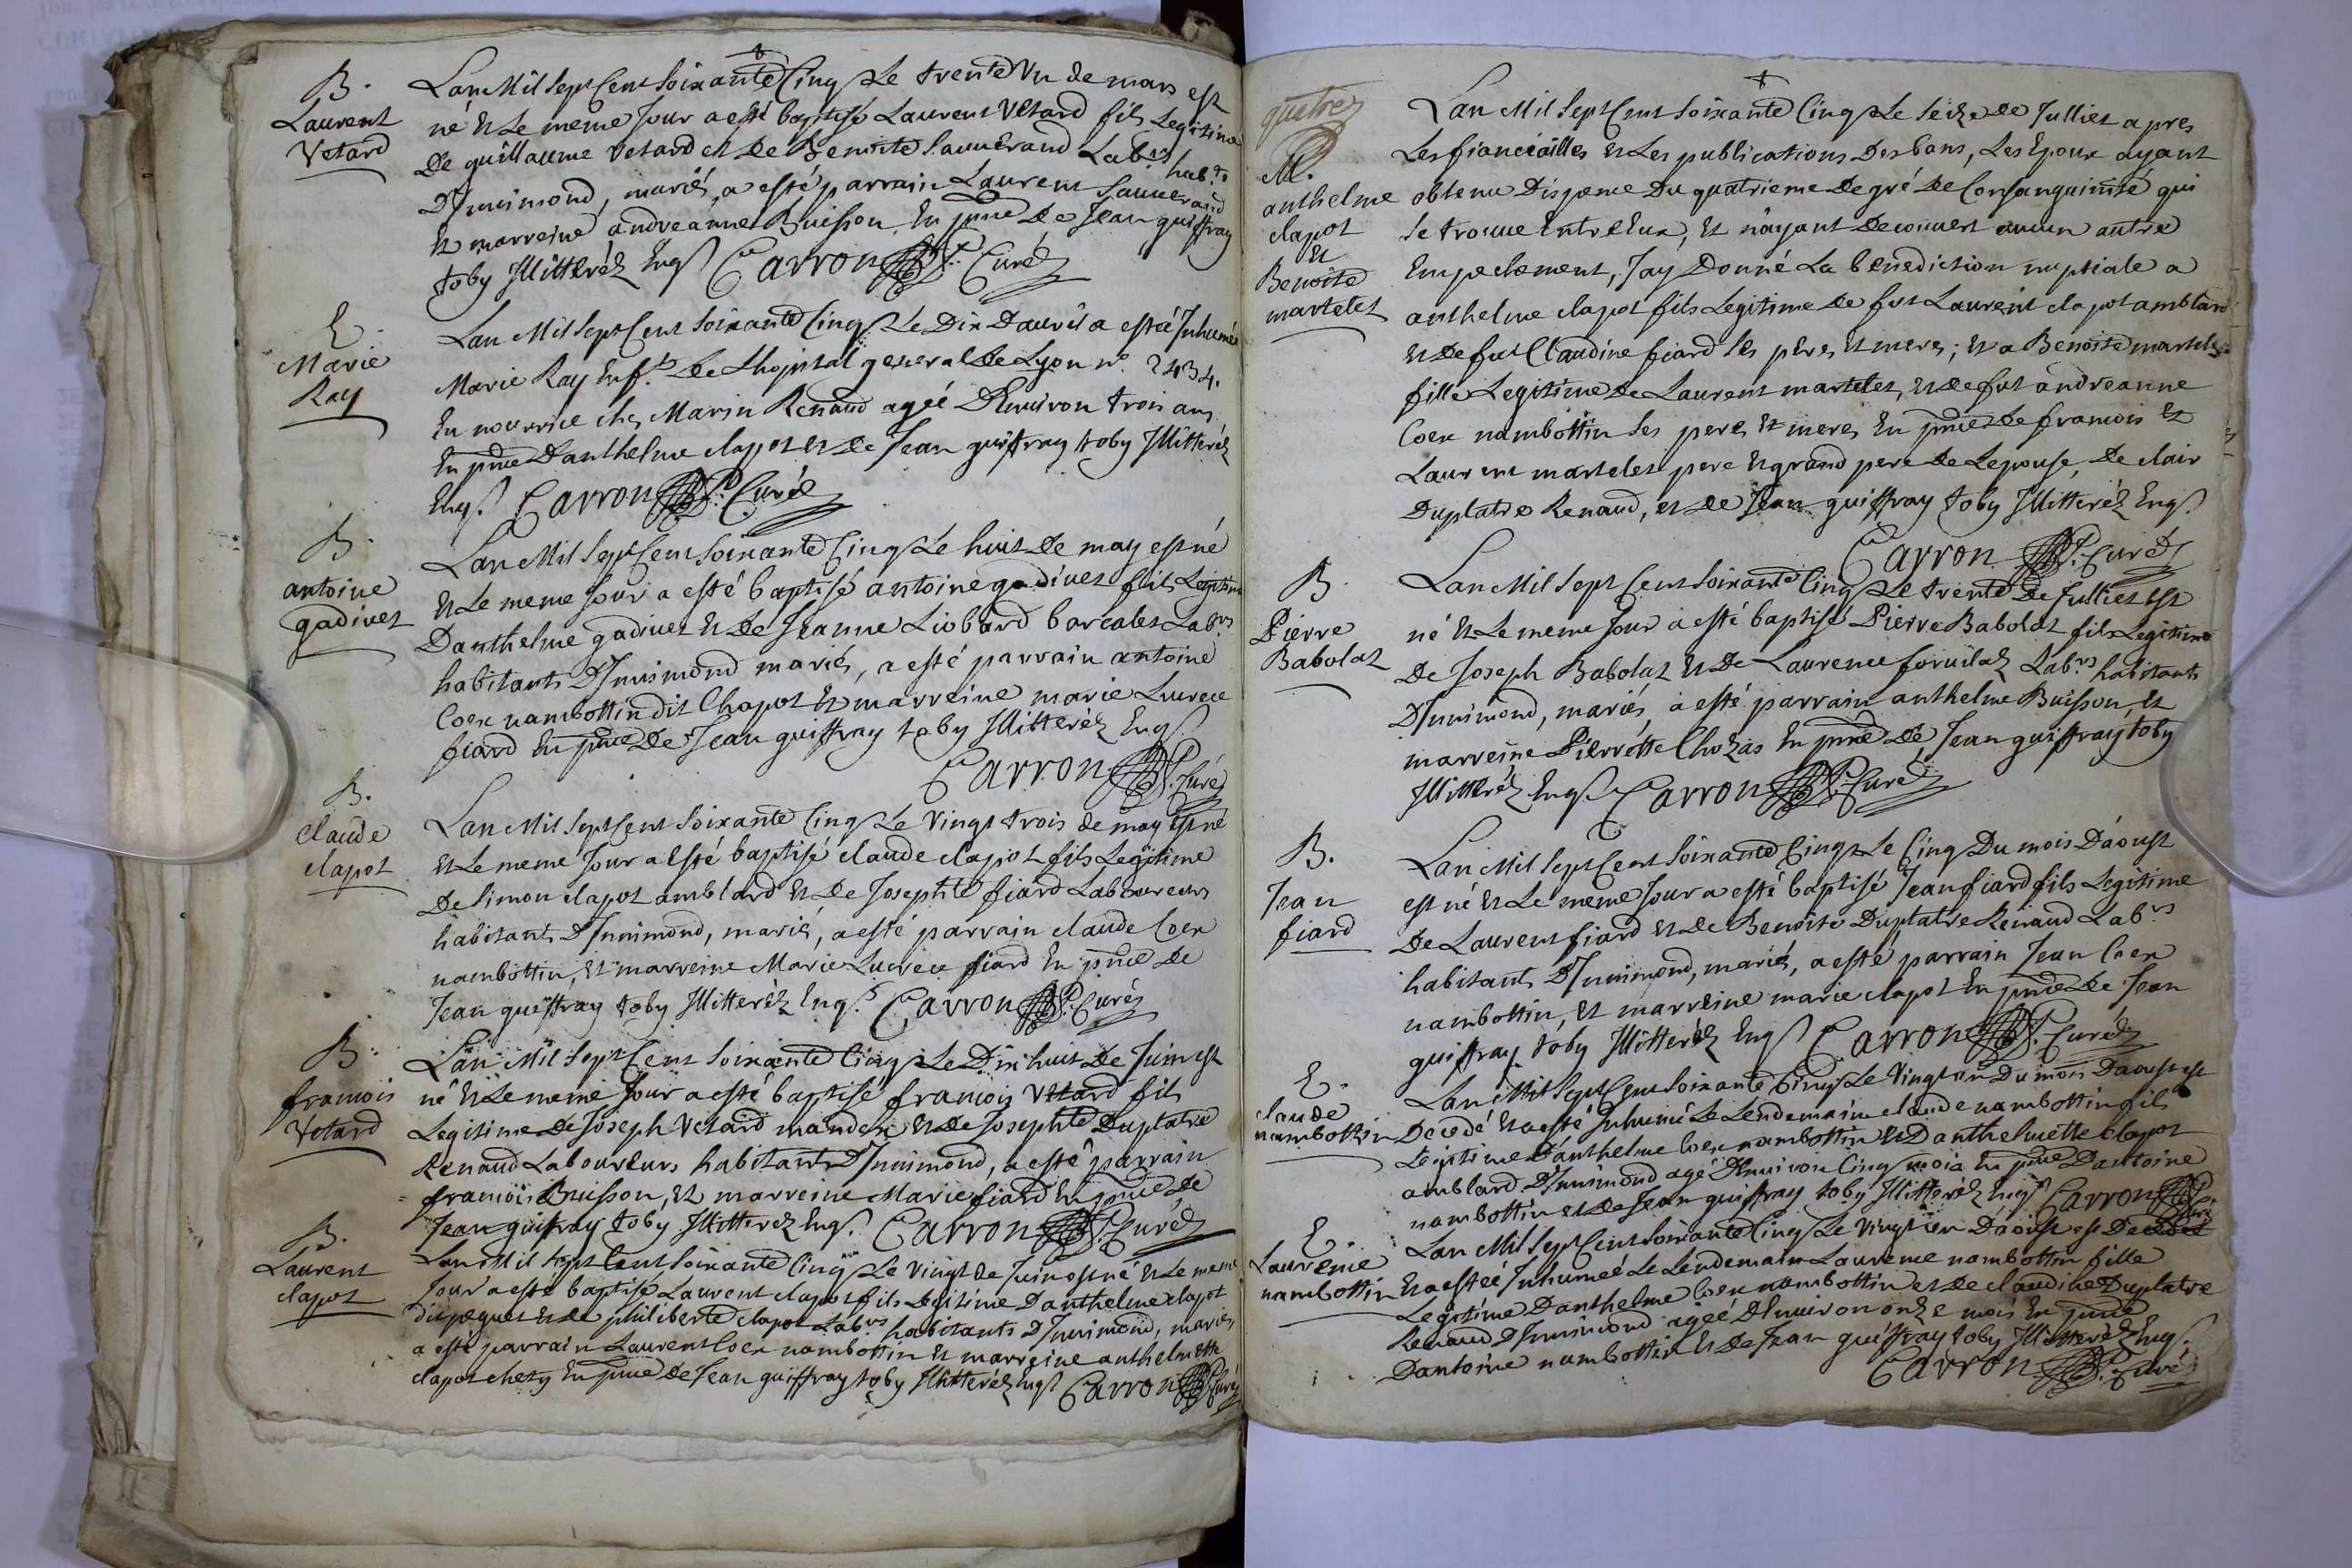 B.
Laurent
Vetard
Lan Mil Sept Cent Soixante Cinq Le trente Un de mars est
né Et Le meme Jour a esté baptisé Laurent Vetard fils Legitime
De guillaume Vetard et De Benoite Sauverand Lab.rs hab.ts
D'Innimond, mariés, a esté parrain Laurent Sauverand
Et marreine andreanne Buisson, En pnce De Jean guiffray
toby Illitteréz Enqs Carron Curé
E.
Marie
Ray
Lan Mil Sept Cent Soixante Cinq Le Dix Davril a esteé Inhumée
Marie Ray Enf.t De Lhopital general De Lyon n.o 2434.
En nourrice chez Marin Renaud ageé D'Environ trois ans
En pnce Danthelme clapot et De Jean guiffray toby Illitteréz
Enqs. Carron Curé
B.
antoine
gadivet
Lan Mil Sept Cent Soixante Cinq Le huit De may est né
Et Le meme Jour a esté baptisé antoine gadivet fils Legitime
Danthelme gadivet Et De Jeanne Liobard barcalet Lab.rs
habitants D'Innimond mariés, a esté parrain antoine
Coex nambottin dit Chapot Et marreine marie Lucrece
fiard En pnce De Jean guiffray toby Illitteréz Enqs.
Carron Curé
B.
claude
clapot
Lan Mil Sept Cent Soixante Cinq Le Vingt trois de may est né
Et Le meme Jour a Esté baptisé claude clapot fils Legitime
De Simon clapot amblard Et De Josephte fiard Laboureurs
habitants D'Innimond, mariés, a esté parrain claude Coex
nambottin, Et marreine Marie Lucrece fiard En pnce De
Jean guiffray toby Illitteréz Enqs. Carron Curé
B.
francois
Vetard
Lan Mil Sept Cent Soixante Cinq Le Dix huit De Juin est
né Et Le meme Jour a esté baptisé francois Vetard fils
Legitime De Joseph Vetard mandex Et De Josephte Duplatre
Renaud Laboureurs habitants D'Innimond, a esté parrain
francois Buisson, Et marreine Marie fiard En pnce De
Jean guiffray toby Illitteréz Enqs. Carron Curé
B.
Laurent
clapot
Lan Mil Sept Cent Soixante Cinq Le Vingt de Juin est né Et Le meme
Jour a esté baptisé Laurent clapot fils Legitime Danthelme clapot
Et De philiberte clapot Lab.rs habitants D'Innimond, mariés,
a esté parrain Laurent Coex nambottin Et marreine anthelmette
clapot En pnce De Jean guiffray toby Illitteréz Enqs Carron Curé
M.
anthelme
clapot
Et
Benoite
martelet
Lan Mil Sept Cent Soixante Cinq Le Seize De Julliet apres
Les fianceailles Et Les publications Des bans, Les Epoux ayant
obtenu Dispense Du quatrieme Degré De Consanguinité qui
Se trouve Entre Eux, Et n'ayant Decouvert aucun autre
Empechement, Jay Donné La benediction nuptiale a
anthelme clapot fils Legitime De fut Laurent clapot amblard
Et De fut Claudine fiard Ses peres Et meres; Et a Benoite martelet
fille Legitime De Laurent martelet, Et De fut andreanne
Coex nambottin Ses peres Et meres, En pnce De francois Et
Laurent martelet pere Et grand pere De Lepouse, De clair
Duplatre Renaud, et De Jean guiffray toby Illitteréz Enqs.
Carron Curé
B
Pierre
Babolat
Lan Mil Sept Cent Soixante Cinq Le trente De Julliet Est
né Et Le meme Jour a esté baptisé Pierre Babolat fils Legitime
De Joseph Babolat Et De Laurence Lab.rs habitants
D'Innimond, mariés, a esté parrain anthelme Buisson, Et
marreine Pierrette Chozas En pnce De Jean guiffray toby
Illitteréz Enqs Carron Curé
B.
Jean
fiard
Lan Mil Sept Cent Soixante Cinq Le Cinq Du mois D'aoust
est né Et Le meme Jour a esté baptisé Jean fiard fils Legitime
De Laurent fiard Et De Benoite Duplatre Renaud Lab.rs
habitants D'Innimond, mariés, a esté parrain Jean Coex
nambottin, Et marreine marie clapot En pnce De Jean
guiffray toby Illitteréz Enqs Carron Curé
E.
claude
nambottin
Lan Mil Sept Cent Soixante Cinq Le Vingt un Du mois Daoust est
Décédé Et a esté Inhumé Le Lendemain claude nambottin fils
Legitime D'anthelme Coex nambottin Et Danthelmette Clapot
amblard D'Innimond agé D'Environ Cinq mois En pnce Dantoine
nambottin et De Jean guiffray toby Illitteréz Enqs Carron Curé
E.
Laurence
nambottin
Lan Mil Sept Cent Soixante Cinq Le Vingt un D'aoust est Decedeé
Et a esteé Inhumeé Le Lendemain Laurence nambottin fille
Legitime Danthelme Coex nambottin et De claudine Duplatre
Renaud D'Innimond ageé D'Environ onze mois En pnce
Dantoine nambottin Et De Jean guiffray toby Illitteréz Enqs.
Carron Curé